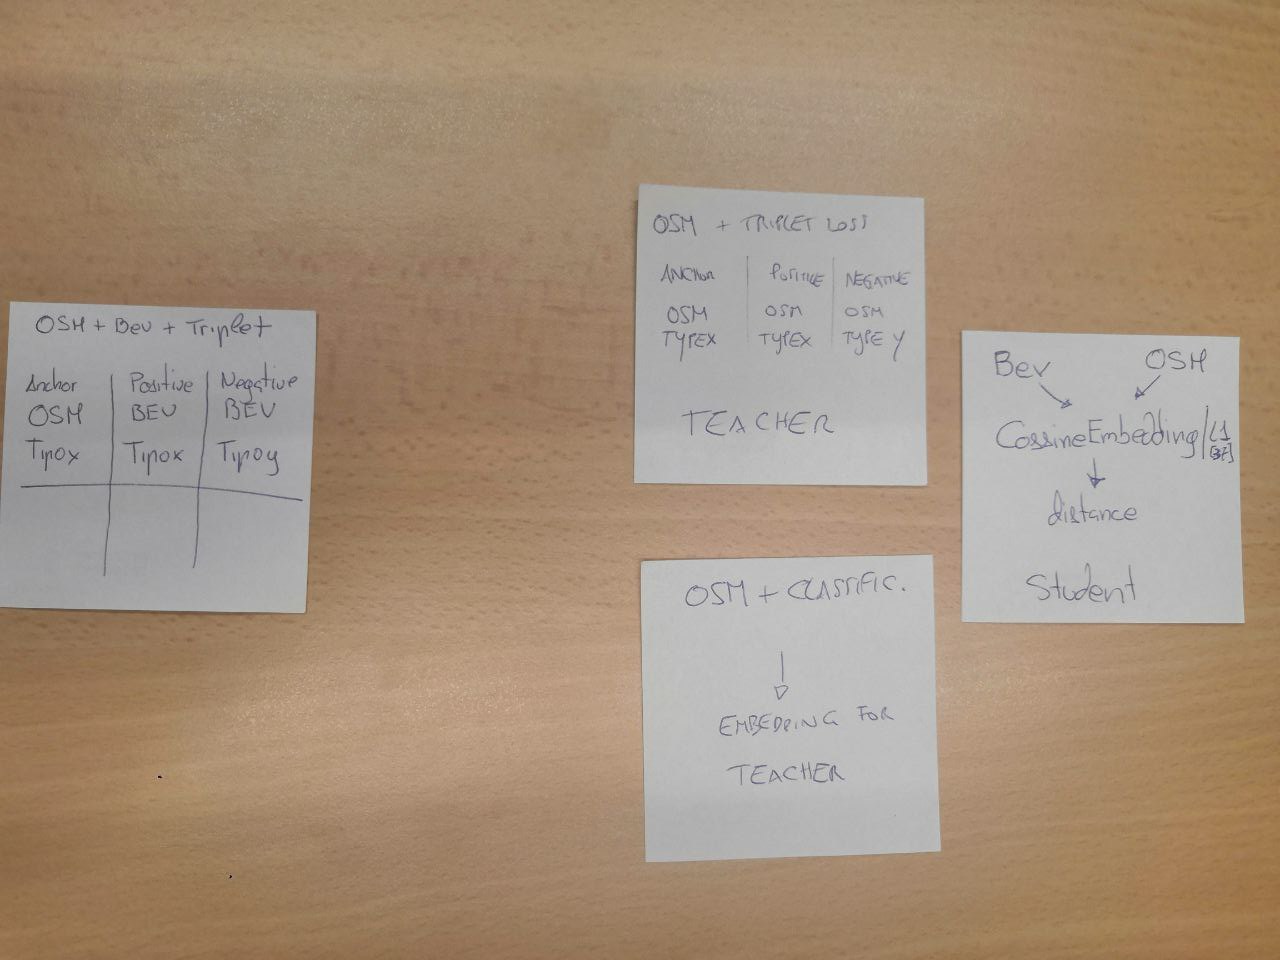 OSM + Bev + Triplet
Anchor Positive Negative
OSM BEV BEV
Tipox Tipox Tipoy
OSM + TRIPLET LOSS
ANCHOR POSITIVE NEGATIVE
OSM OSM OSM
TYPEX TYPEX TYPE Y
TEACHER
OSM + CLASSIFIC.
EMBEDDING FOR
TEACHER
Bev OSM
CossineEmbedding/L1
distance
Student